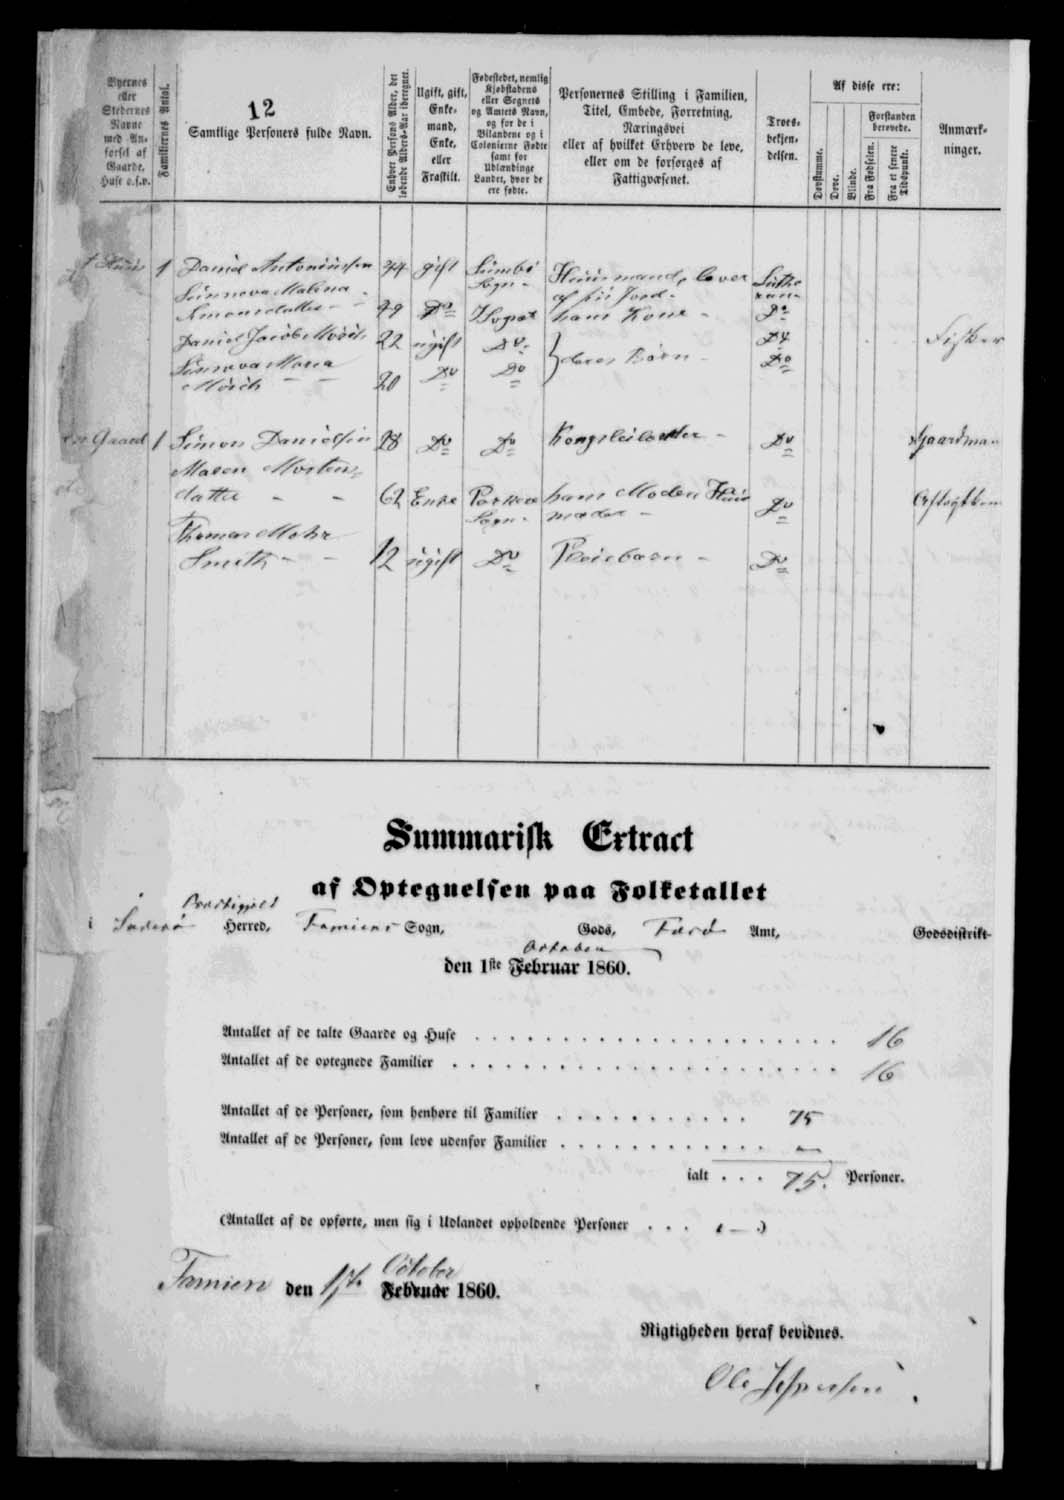 Byernes
eller
Stedernes
Navne
med An-
førsel af
Gaarde,
Huse o.s.v.
Familiernes Antal.
12
Samtlige Personers fulde Navn.
Enhver Persons Alder, det
løbende Alders-Aar iberegnet.
Ugift, gift,
Enke-
mand,
Enke,
eller
Fraskilt.
Fødestedet, nemlig
Kjøbstadens
eller Sognets
og Amtets Navn,
og for de i
Bilandene og i
Colonierne Fødte
samt for
Udlændinge
Landet, hvor de
ere fødte.
Personernes Stilling i Familien,
Titel, Embede, Forretning,
Næringsvei
eller af hvilket Erhverv de leve,
eller om de forsørges af
Fattigvæsenet.
Troes-
bekjen-
delsen.
Af disse ere:
Døvstumme.
Døve.
Blinde.
Forstanden
berøvede.
Fra Fødselen.
Fra et senere
Tidspunkt.
Anmærk-
ninger.
1 Daniel Antoniussen 44 gift Sumbø Huusmand, lever Luthe
Sunneva Malena Sogn af sin Jord ran
Simonsdatter 49 Do hans Kone Do
Daniel Jacob Mørch 22 ugift Do Do Fisker
deres Børn
Sunneva Maria Do
Mørch 20 Do Do
Gaard 1 Simon Danielsen 28 Do Do Kongsleilænder Do Gaardman
Maren Mortens
datter 62 Enke Porkere hans Moder Huus Do
Sogn moder
Thomas Mohr
Smith 12 ugift Do Pleiebarn Do
Summarisk Extract
af Optegnelsen paa Folketallet
Præstegjeld
i Suderø Herred, Famiens Sogn, Gods, Færø Amt, Godsdistrikt
October
den 1ste Februar 1860.
Antallet af de talte Gaarde og Huse 16
Antallet af de optegnede Familier 16
Antallet af de Personer, som henhøre til Familier 75
Antallet af de Personer, som leve udenfor Familier —
ialt . . . 75. Personer.
(Antallet af de opførte, men sig i Udlandet opholdende Personer . . . — )
October
Famien den 1ste Februar 1860.
Rigtigheden heraf bevidnes.
Ole Jespersen